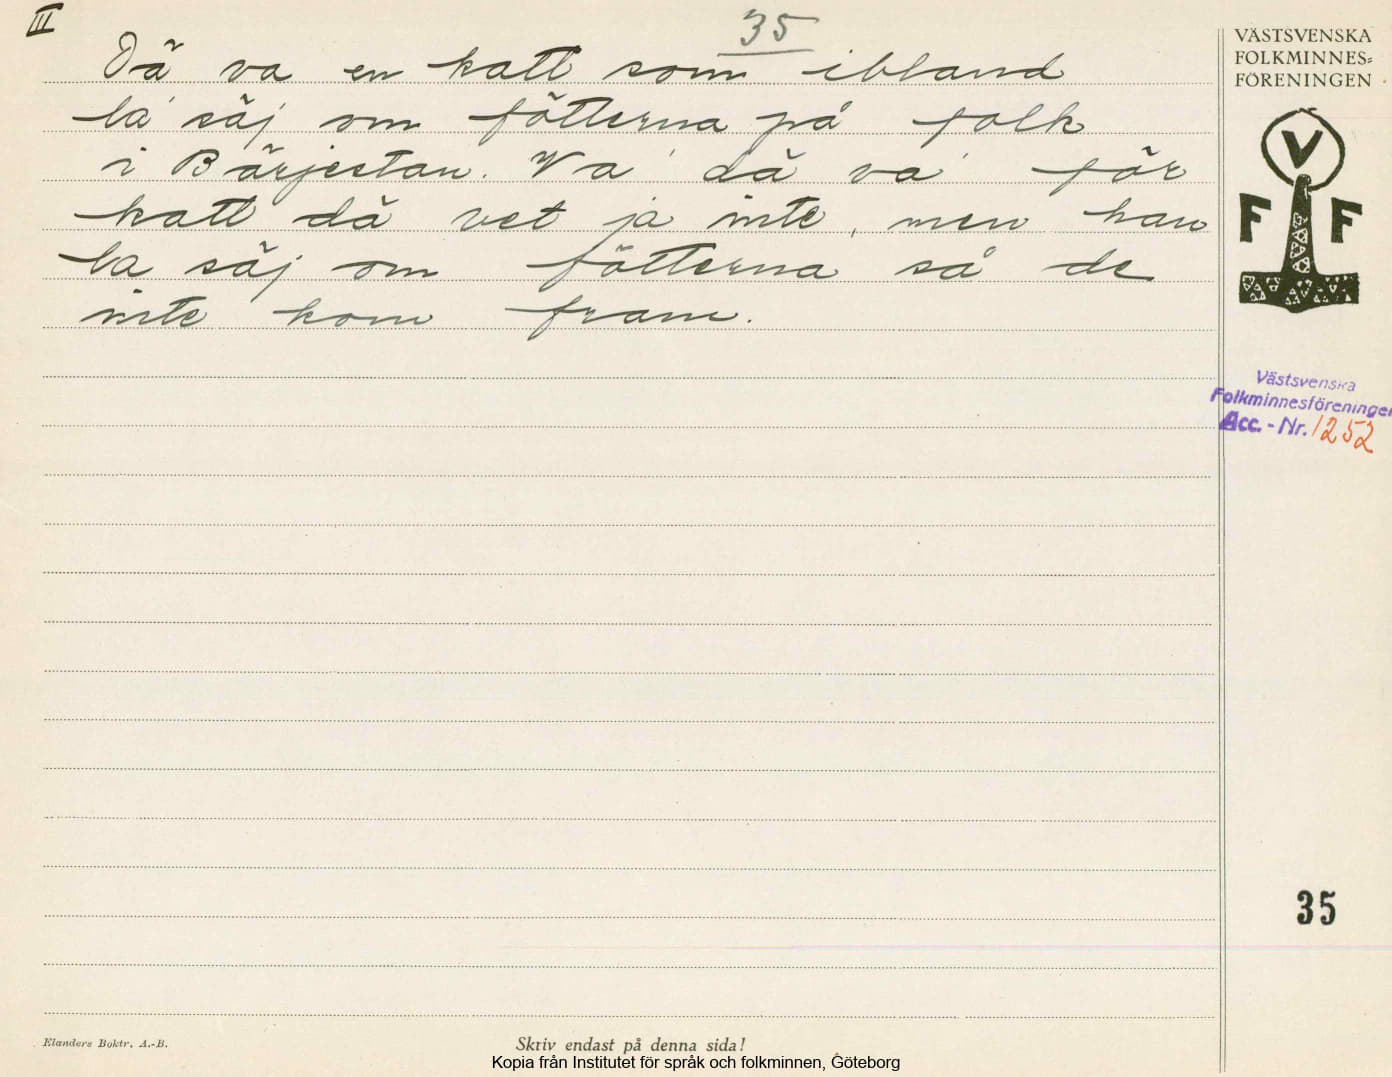 III
35
Dä va en katt som ibland
la säj om fötterna på folk
i Bärjestan. Va dä va för
katt dä vet ja inte, men han
la säj om fötterna så de
inte kom fram.
VÄSTSVENSKA
FOLKMINNES=
FÖRENINGEN
V
F F
Västsvenska
Folkminnesföreningen
Acc. - Nr. 1252
35
Elanders Boktr. A.-B.
Skriv endast på denna sida!
Kopia från Institutet för språk och folkminnen, Göteborg